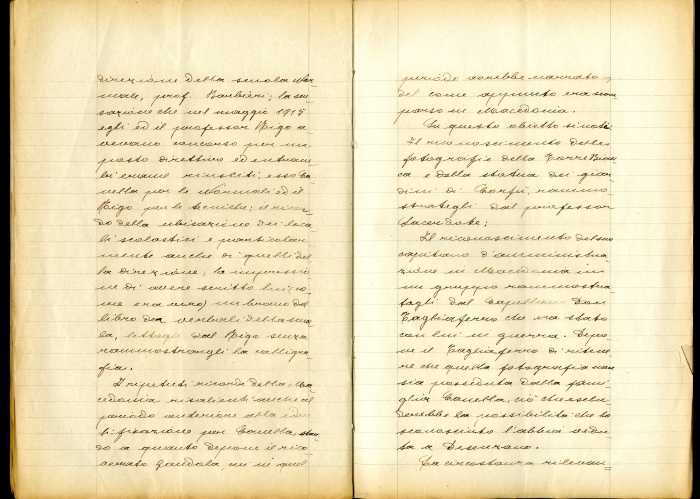 direzione della scuola Nor-
male, prof. Barbieri; la sen-
sazione che nel maggio 1915
egli ed il professor Rigo a-
vevano concorso per un
posto direttivo ed entram-
bi erano riusciti, esso Ca-
nella per le Normali ed il
Rigo per le tecniche; il ricor-
do della ubicazione dei loca-
li scolastici e particolar-
mente anche di quelli del-
la direzione; la impressio-
ne di avere scritto lui (co-
me era vero) un brano del
libro dei verbali della scuo-
la, lettogli dal Rigo senza
rammostrargli la calligra-
fia.
I ripetuti ricordi della Ma-
cedonia risalienti anche al
periodo anteriore alla iden-
tificazione per Canella, stan-
do a quanto depone il rico-
verato Gondola cui in quel
periodo avrebbe narrato
del come appunto era scom-
parso in Macedonia.
In questo obietto si noti:
Il riconoscimento delle
fotografie della Torre Bian-
ca e della statua dei giar-
dini di Corfù, rammo-
strategli dal professor
Sacerdote;
Il riconoscimento del suo
capitano d'amministra-
zione in Macedonia in
un gruppo rammostra-
togli dal Cappellano Don
Tagliaferro che era stato
con lui in guerra. Depo-
ne il Tagliaferro di ritene-
re che quella fotografia non
sia posseduta dalla fami-
glia Canella, ciò che esclu-
derebbe la possibilità che lo
sconosciuto l'abbia vedu-
ta a Desenzano.
La circostanza rilevan-